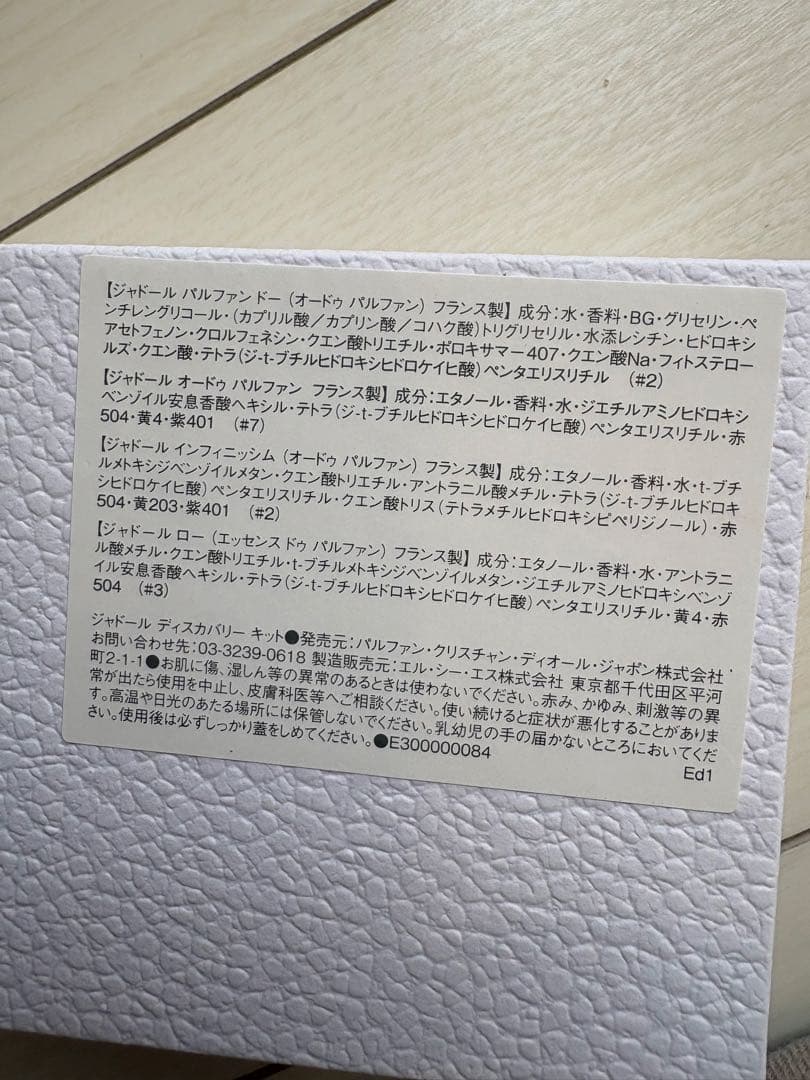 【ジャドール パルファン ドー (オードゥ パルファン) フランス製】 成分：水・香料・BG・グリセリン・ペ
ンチレングリコール・(カプリル酸／カプリン酸／コハク酸)トリグリセリル・水添レシチン・ヒドロキシ
アセトフェノン・クロルフェネシン・クエン酸トリエチル・ポロキサマー407・クエン酸Na・フィトステロー
ルズ・クエン酸・テトラ(ジ-t-ブチルヒドロキシヒドロケイヒ酸)ペンタエリスリチル (#2)
【ジャドール オードゥ パルファン フランス製】 成分：エタノール・香料・水・ジエチルアミノヒドロキシ
ベンゾイル安息香酸ヘキシル・テトラ(ジ-t-ブチルヒドロキシヒドロケイヒ酸)ペンタエリスリチル・赤
504・黄4・紫401 (#7)
【ジャドール インフィニッシム (オードゥ パルファン) フランス製】 成分：エタノール・香料・水・t-ブチ
ルメトキシジベンゾイルメタン・クエン酸トリエチル・アントラニル酸メチル・テトラ(ジ-t-ブチルヒドロキ
シヒドロケイヒ酸)ペンタエリスリチル・クエン酸トリス(テトラメチルヒドロキシピペリジノール)・赤
504・黄203・紫401 (#2)
【ジャドール ロー (エッセンス ドゥ パルファン) フランス製】 成分：エタノール・香料・水・アントラニ
ル酸メチル・クエン酸トリエチル・t-ブチルメトキシジベンゾイルメタン・ジエチルアミノヒドロキシベンゾ
イル安息香酸ヘキシル・テトラ(ジ-t-ブチルヒドロキシヒドロケイヒ酸)ペンタエリスリチル・黄4・赤
504 (#3)
ジャドール ディスカバリー キット●発売元：パルファン・クリスチャン・ディオール・ジャポン株式会社
お問い合わせ先：03-3239-0618 製造販売元：エル・シー・エス株式会社 東京都千代田区平河
町2-1-1●お肌に傷、湿しん等の異常のあるときは使わないでください。赤み、かゆみ、刺激等の異
常が出たら使用を中止し、皮膚科医等へご相談ください。使い続けると症状が悪化することがありま
す。高温や日光のあたる場所には保管しないでください。乳幼児の手の届かないところにおいてくだ
さい。使用後は必ずしっかり蓋をしめてください。●E300000084
Ed1